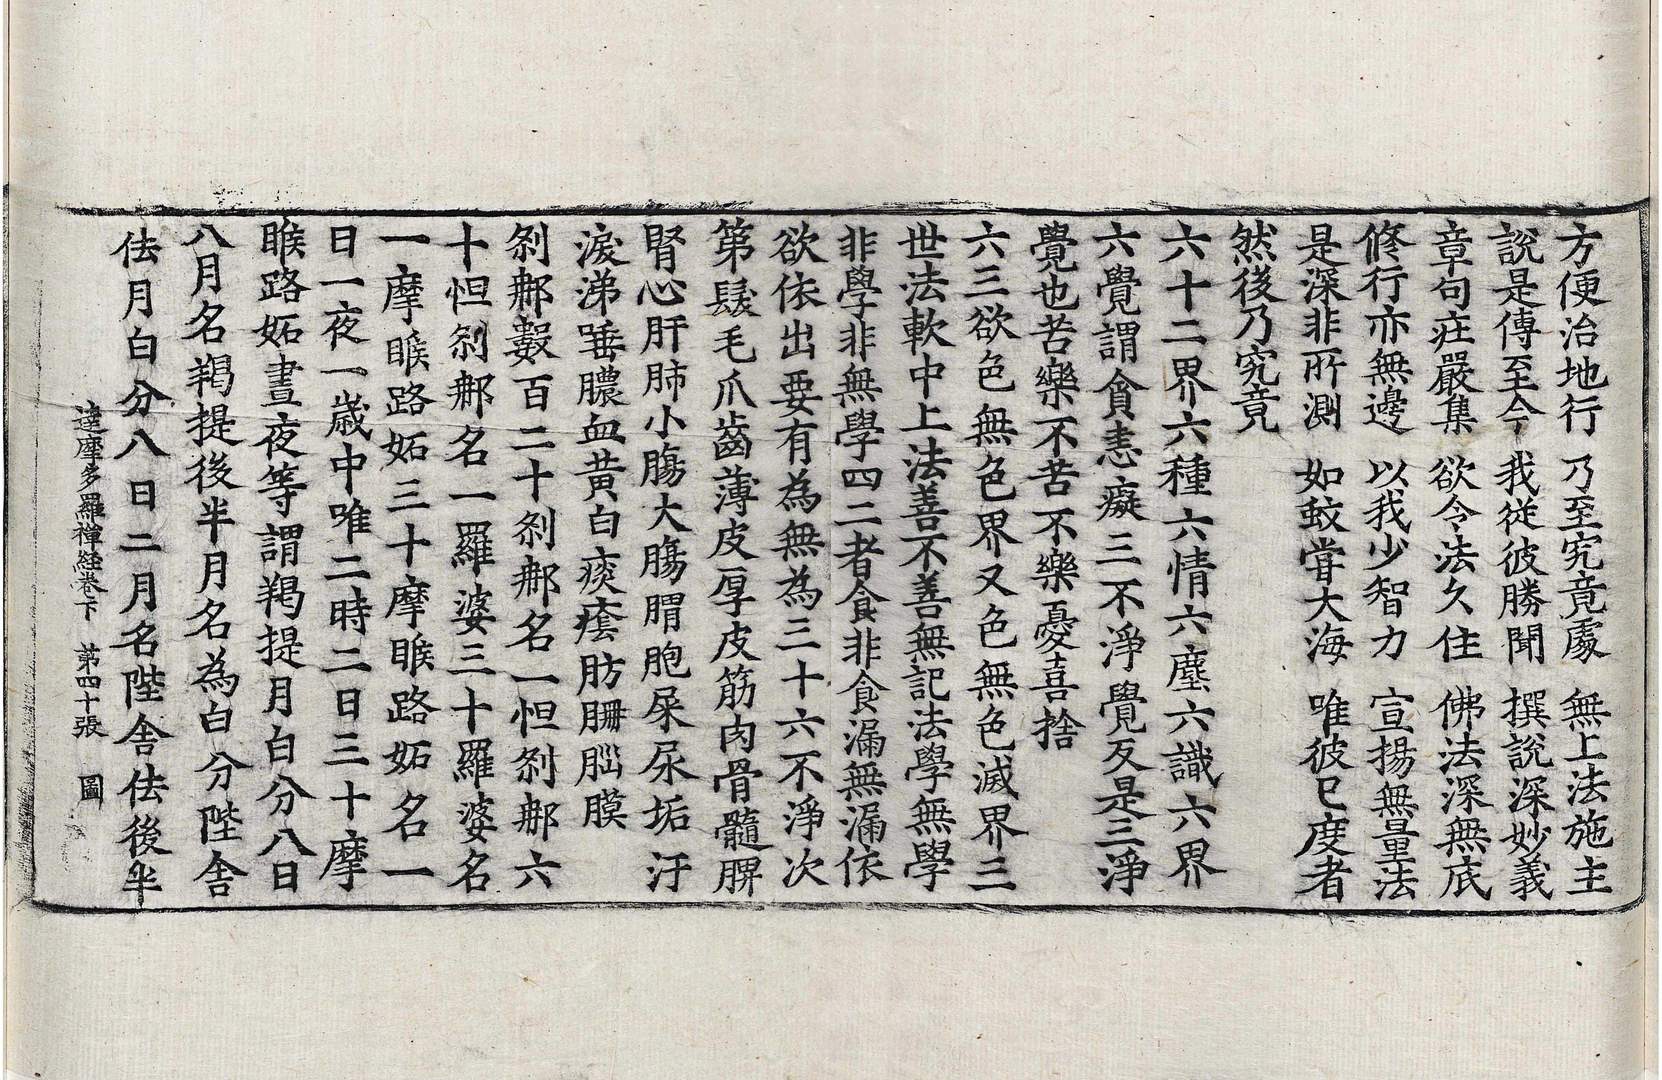 方便治地行　乃至究竟處　無上法施主
說是傳至今　我從彼勝聞　撰說深妙義
章句莊嚴集　欲令法久住　佛法深無底
修行亦無邊　以我少智力　宣揚無量法
是深非所測　如蚊甞大海　唯彼已度者
然後乃究竟
六十二界六種六情六塵六識六界
六覺謂貪恚癡三不淨覺反是三淨
覺也苦樂不苦不樂憂喜捨
六三欲色無色界又色無色滅界三
世法軟中上法善不善無記法學無學
非學非無學四二者食非食漏無漏依
欲依出要有為無為三十六不淨次
第髮毛爪齒薄皮厚皮筋肉骨髓脾
腎心肝肺小膓大膓胃胞屎尿垢汙
淚涕唾膿血黃白痰癊肪𦙱腦膜
剎那數百二十剎那名一怛剎那六
十怛剎那名一羅婆三十羅婆名
一摩睺路妬三十摩睺路妬名一
日一夜一歲中唯二時二日三十摩
睺路妬晝夜等謂羯提月白分八日
八月名羯提後半月名為白分陛舍
佉月白分八日二月名陛舍佉後半
達摩多羅禪經卷下　第四十張　圖